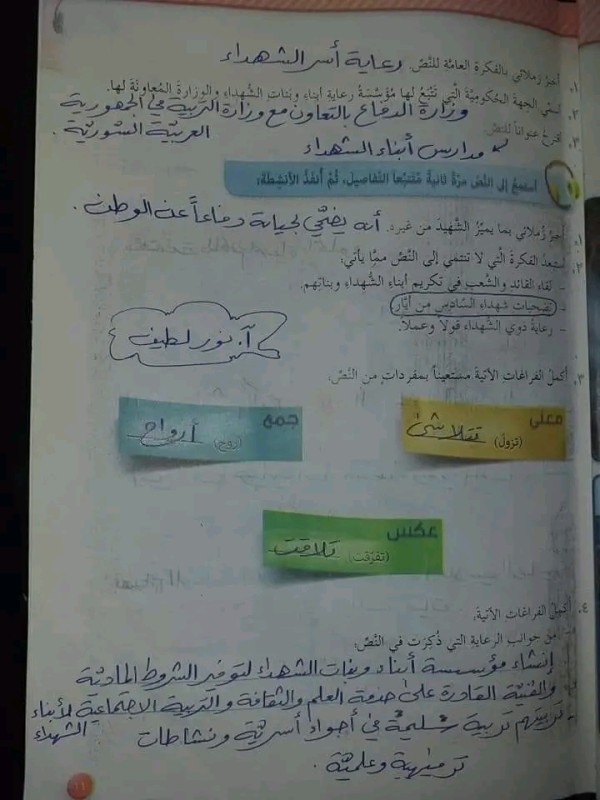 ١. أخبرُ زملائي بالفكرة العامّة للنّصّ. رعاية أسر الشهداء
٢. أسمّي الجهةَ الحكوميّةَ الّتي تَتْبَعُ لها مؤسّسةُ رعايةِ أبناءِ وبناتِ الشّهداءِ والوزارةَ المُعاوِنةَ لها.
وزارة الدفاع بالتعاون مع وزارة التربية في الجمهورية
العربيّة السّوريّة.
٣. أقترحُ عنواناً للنّصّ.
مدارس أبناء الشهداء
أستمعُ إلى النّصّ مرّةً ثانيةً مُتتبّعاً التّفاصيل، ثمّ أنفّذُ الأنشطة:
١. أخبرُ زملائي بما يميّزُ الشّهيدَ من غيره. أنه يضحّي لحياته دفاعاً عن الوطن.
٢. أستبعدُ الفكرةَ الّتي لا تنتمي إلى النّصّ ممّا يأتي:
- لقاء القائد والشّعب في تكريم أبناءِ الشّهداء وبناتِهم.
- تضحيات شهداء السّادس من أيّار.
- رعاية ذوي الشّهداء قولاً وعملاً.
آ. نور لطيف
٣. أكملُ الفراغات الآتيةَ مستعيناً بمفرداتٍ من النّصّ.
معنى
(تزول) تتلاشى
جمع
(روح) أرواح
عكس
(تفرّقت) تلاقت
٤. أكملُ الفراغات الآتية.
من جوانب الرعاية التي ذُكِرَت في النّصّ:
إنشاء مؤسسة أبناء وبنات الشهداء لتوفير الشروط الماديّة
والفنيّة القادرة على خدمة العلم والثقافة والتربية الاجتماعية لأبناء
الشهداء
- تربيتهم تربية سليمة في أجواء أسريّة ونشاطات
ترفيهية وعلميّة.
١١